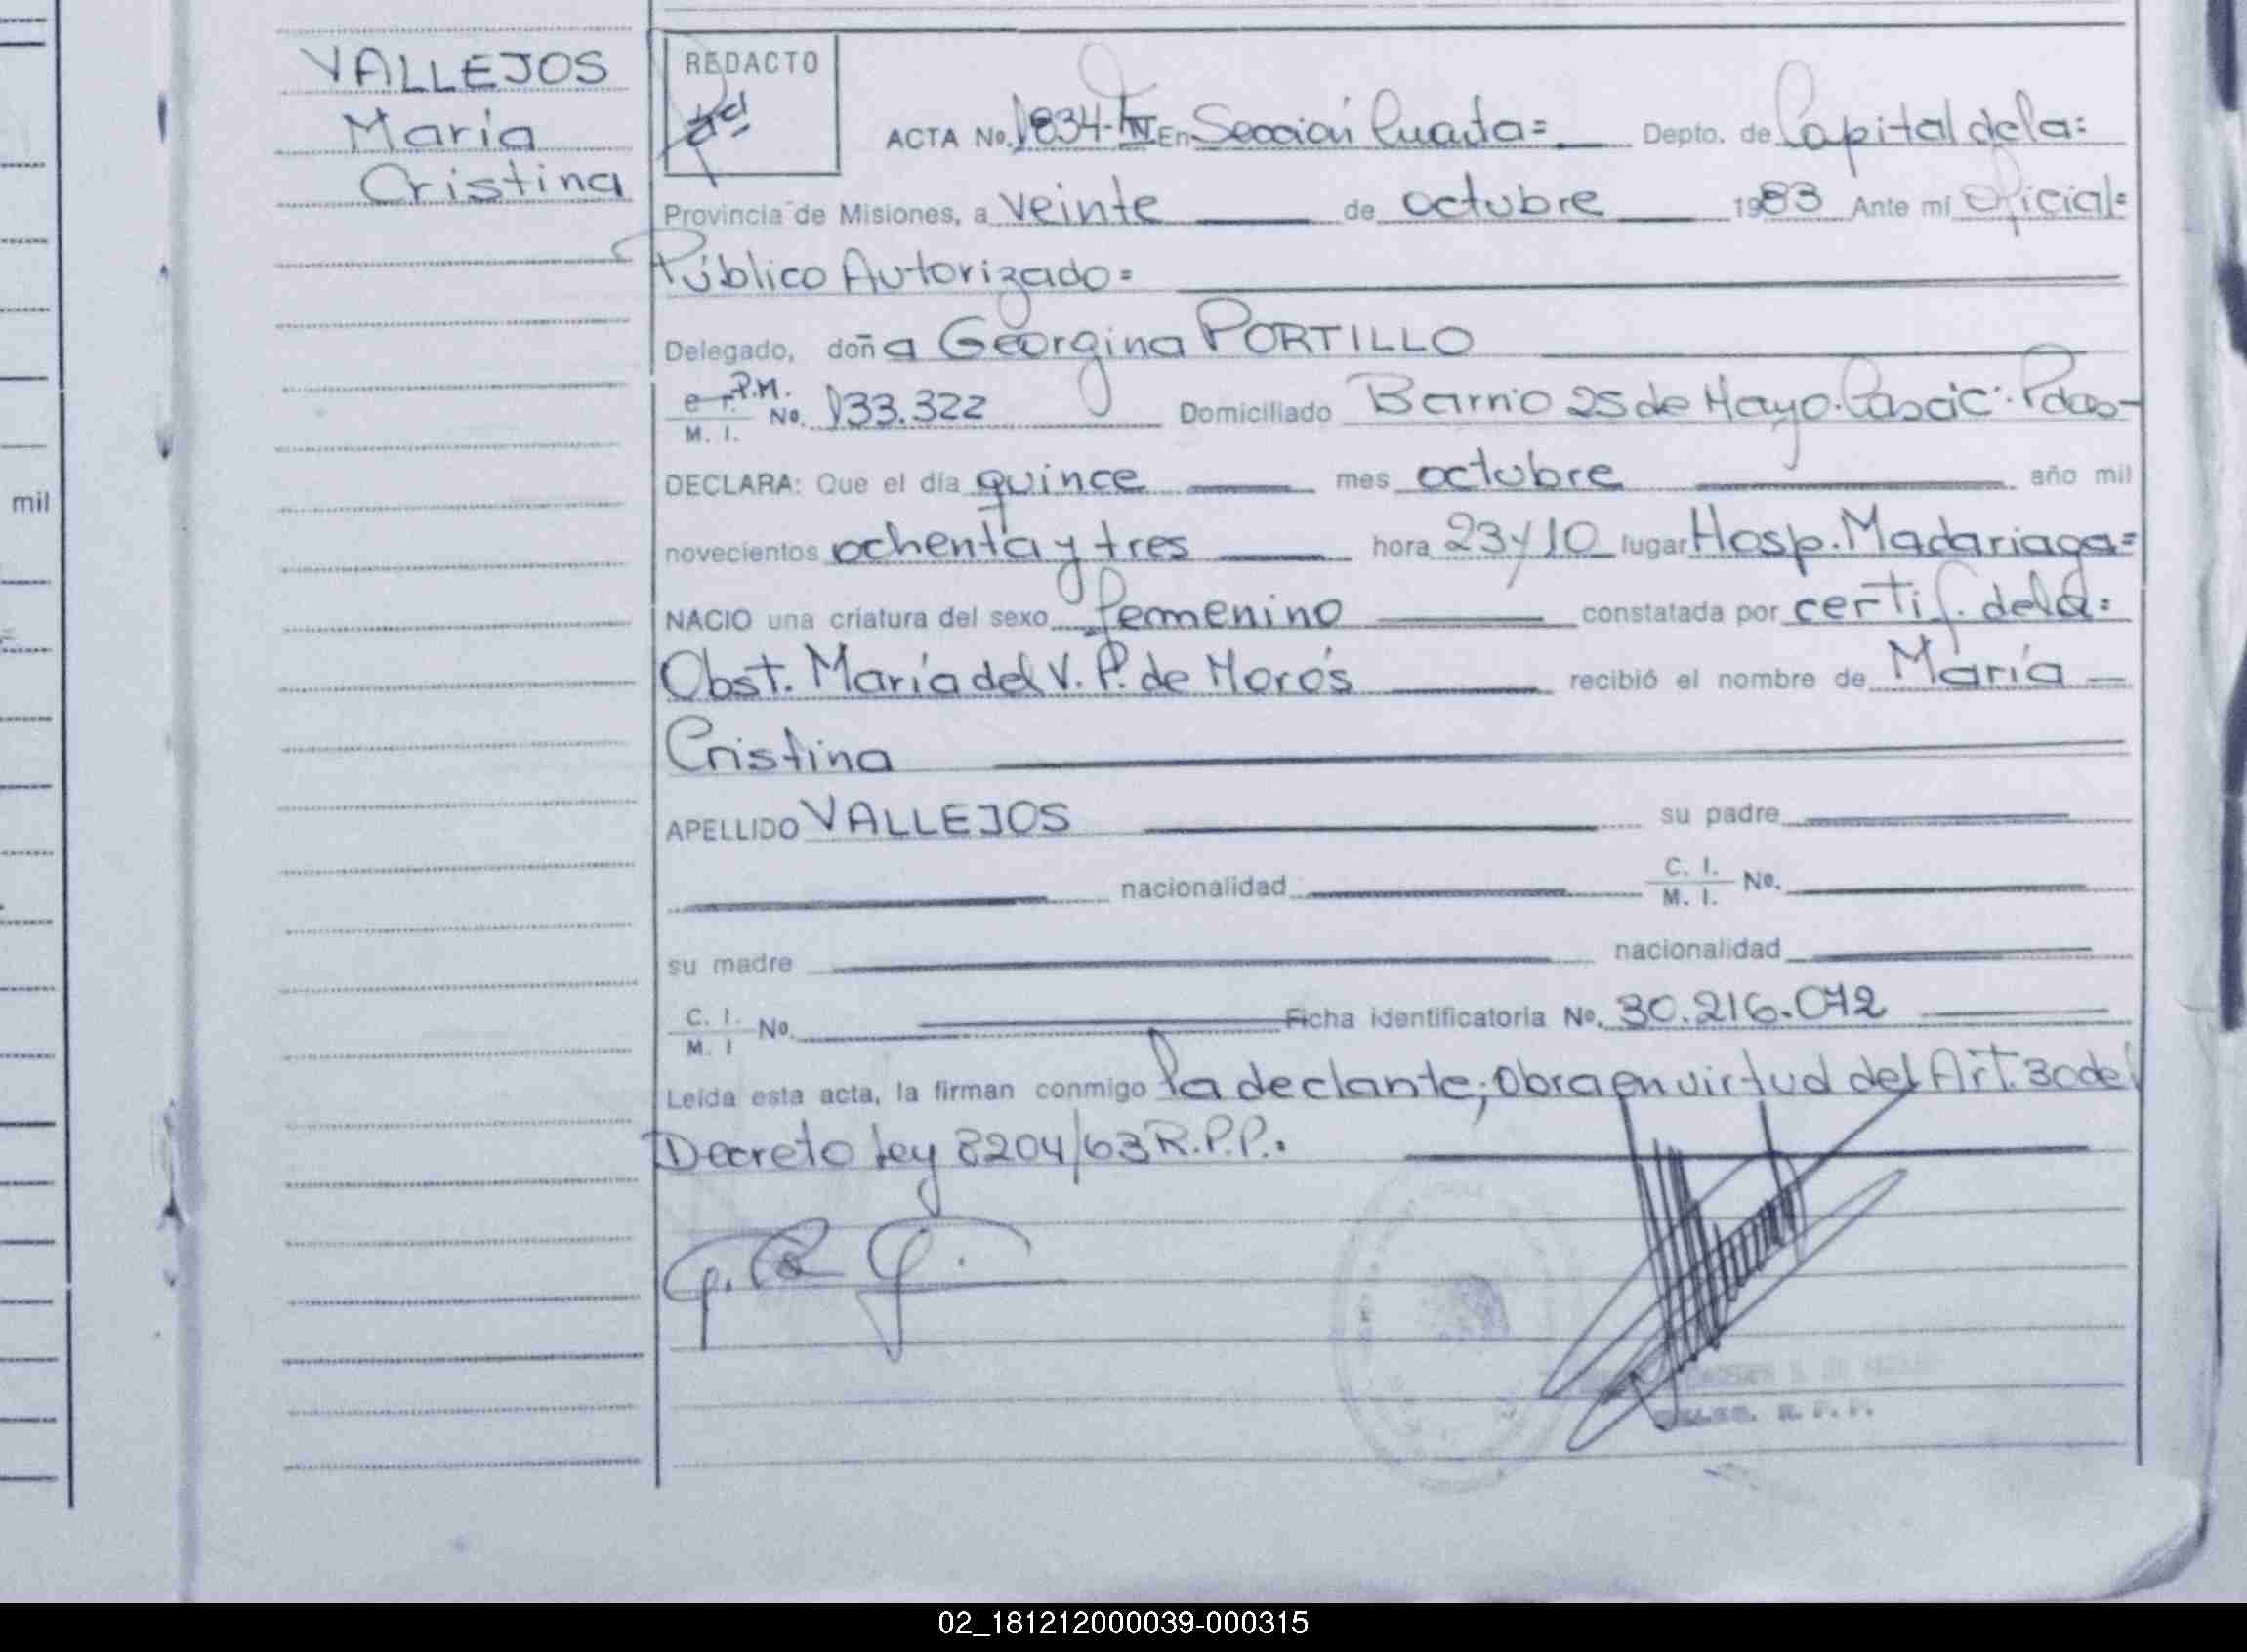 VALLEJOS
María
Cristina
mil
REDACTO
ACTA No. 1834-T IV En Sección Cuarta= Depto. de Capital de la=
Provincia de Misiones, a veinte de octubre 1983 Ante mí Oficial=
Público Autorizado=
Delegado, doña Georgina PORTILLO
P.M.
M. I. No. 133.322 Domiciliado Barrio 25 de Mayo. Pdas-
DECLARA: Que el día quince mes octubre año mil
novecientos ochenta y tres hora 23y10 lugar Hosp. Madariaga=
NACIO una criatura del sexo femenino constatada por certif. de la=
Obst. María del V. P. de Morós recibió el nombre de María
Cristina
APELLIDO VALLEJOS su padre
nacionalidad C. I. M. I. No.
su madre nacionalidad
C. I. M. I No. Ficha identificatoria No. 30.216.072
Leída esta acta, la firman conmigo la declante; Obra en virtud del Art. 30 del
Decreto Ley 8204/63 R.P.P.=
R. P. P.
02_181212000039-000315